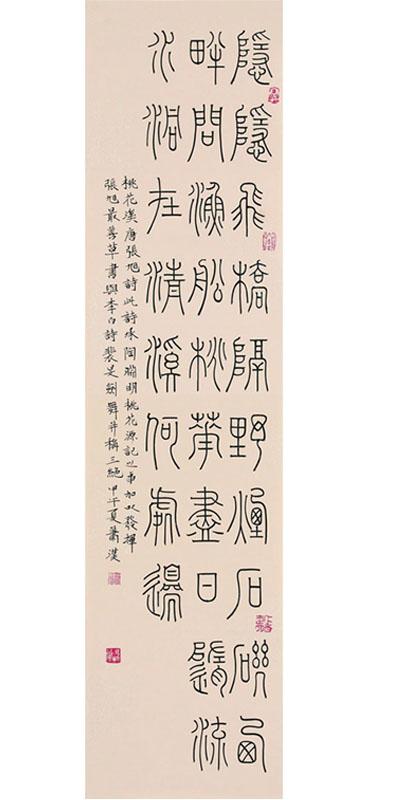 隱隱飛橋隔野煙石磯西
畔問漁船桃華盡日隨流
水洞在清溪何處邊
桃花溪唐張旭詩此詩承陶淵明桃花源記之事加以發揮
張旭最善草書與李白詩裴旻劍舞并稱三絕甲午夏蕭漢